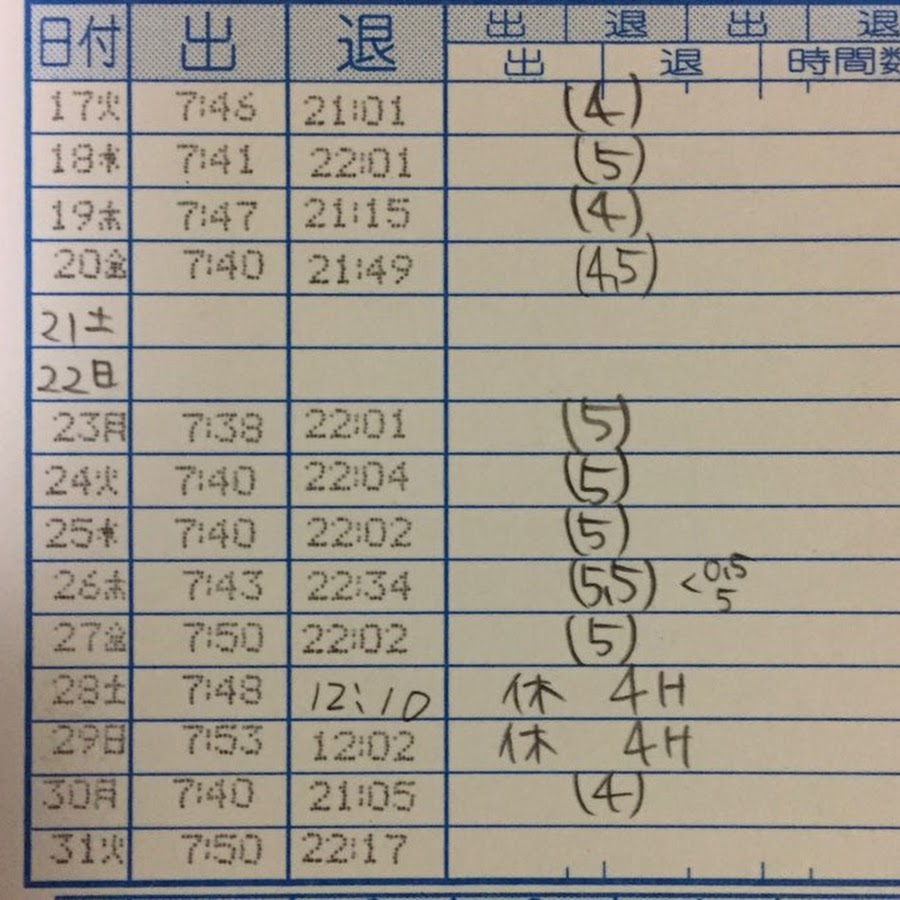 日付 出 退 出 退 出 退
出 退 時間数
17火 7:46 21:01 (4)
18水 7:41 22:01 (5)
19木 7:47 21:15 (4)
20金 7:40 21:49 (4,5)
21土
22日
23月 7:38 22:01 (5)
24火 7:40 22:04 (5)
25水 7:40 22:02 (5)
26木 7:43 22:34 (5,5) < 0,5
5
27金 7:50 22:02 (5)
28土 7:48 12:10 休 4H
29日 7:53 12:02 休 4H
30月 7:40 21:05 (4)
31火 7:50 22:17